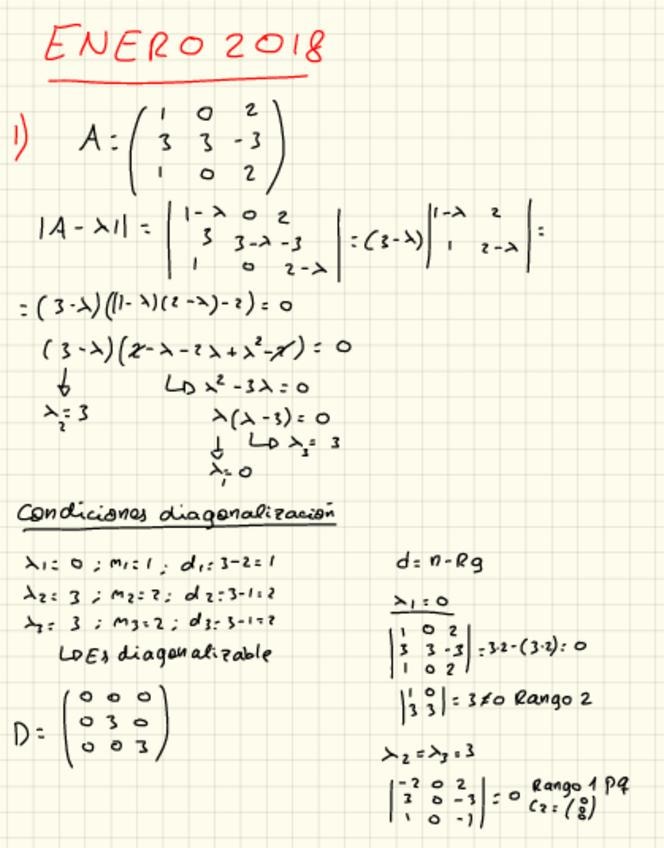 ENERO 2018
1) A = ( 1 0 2
3 3 -3
1 0 2 )
|A - λI| = | 1-λ 0 2
3 3-λ -3
1 0 2-λ | = (3-λ) | 1-λ 2
1 2-λ | =
= (3-λ)((1-λ)(2-λ)-2) = 0
(3-λ)(2-λ-2λ+λ²-2) = 0
↓ ↳ λ²-3λ = 0
λ₂ = 3 λ(λ-3) = 0
↓ ↳ λ₃ = 3
λ₁ = 0
Condiciones diagonalización
λ₁ = 0 ; m₁ = 1 ; d₁ = 3-2 = 1
λ₂ = 3 ; m₂ = 2 ; d₂ = 3-1 = 2
λ₃ = 3 ; m₃ = 2 ; d₃ = 3-1 = 2
↳ Es diagonalizable
D = ( 0 0 0
0 3 0
0 0 3 )
d = n - Rg
λ₁ = 0
| 1 0 2
3 3 -3
1 0 2 | = 3·2-(3·2) = 0
| 1 0
3 3 | = 3 ≠ 0 Rango 2
λ₂ = λ₃ = 3
| -2 0 2
3 0 -3
1 0 -1 | = 0 Rango 1 pq
C₂ = ( 0
0
0 )